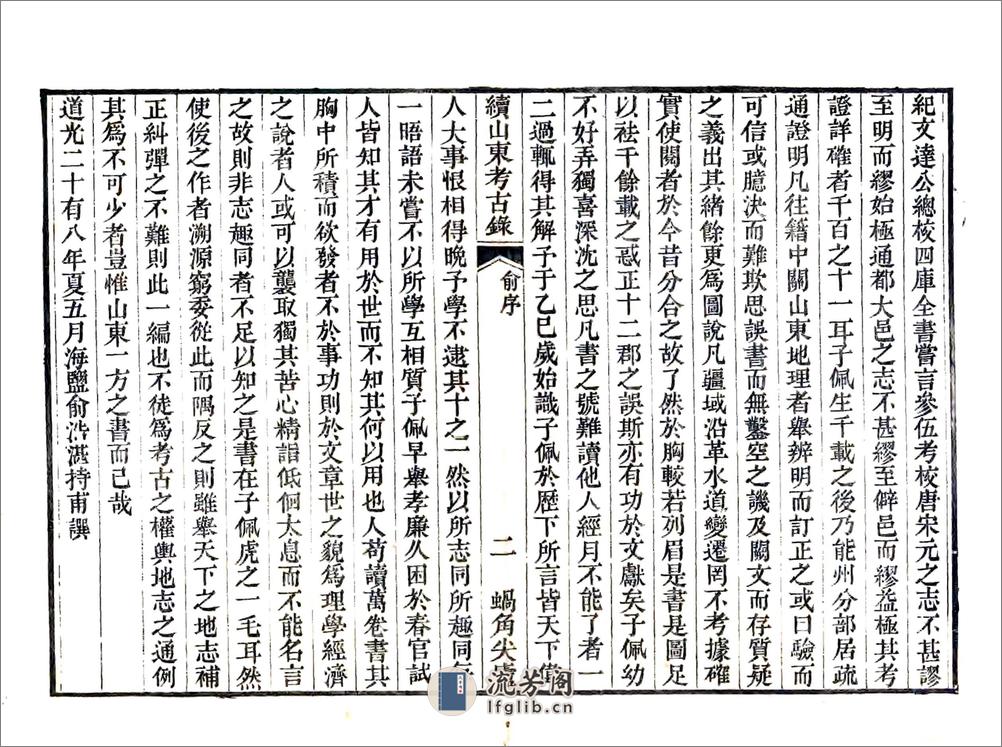 紀文達公總校四庫全書嘗言參伍考校唐宋元之志不甚謬
至明而繆始極通都大邑之志不甚繆至僻邑而繆益極其考
證詳確者千百之十一耳子佩生千載之後乃能州分部居疏
通證明凡往籍中關山東地理者舉辨明而訂正之或目驗而
可信或臆決而難欺思誤書而無鑿空之譏及闕文而存質疑
之義出其緒餘更爲圖說凡疆域沿革水道變遷罔不考據確
實使閱者於今昔分合之故了然於胸較若列眉是書是圖足
以袪千餘載之惑正十二郡之誤斯亦有功於文獻矣子佩幼
不好弄獨喜深沈之思凡書之號難讀他人經月不能了者一
二過輒得其解予于乙巳歲始識子佩於歷下所言皆天下偉
續山東考古錄
俞序
二
蝸角尖廬
人大事恨相得晚予學不逮其十之一然以所志同所趣同每
一晤語未嘗不以所學互相質子佩早舉孝廉久困於春官試
人皆知其才有用於世而不知其何以用也人苟讀萬卷書其
胸中所積而欲發者不於事功則於文章世之貌爲理學經濟
之說者人或可以襲取獨其苦心精詣低佪太息而不能名言
之故則非志趣同者不足以知之是書在子佩虎之一毛耳然
使後之作者溯源窮委從此而隅反之則雖舉天下之地志補
正糾彈之不難則此一編也不徒爲考古之權輿地志之通例
其爲不可少者豈惟山東一方之書而已哉
道光二十有八年夏五月海鹽俞浩湛持甫譔
流芳閣
lfglib.cn